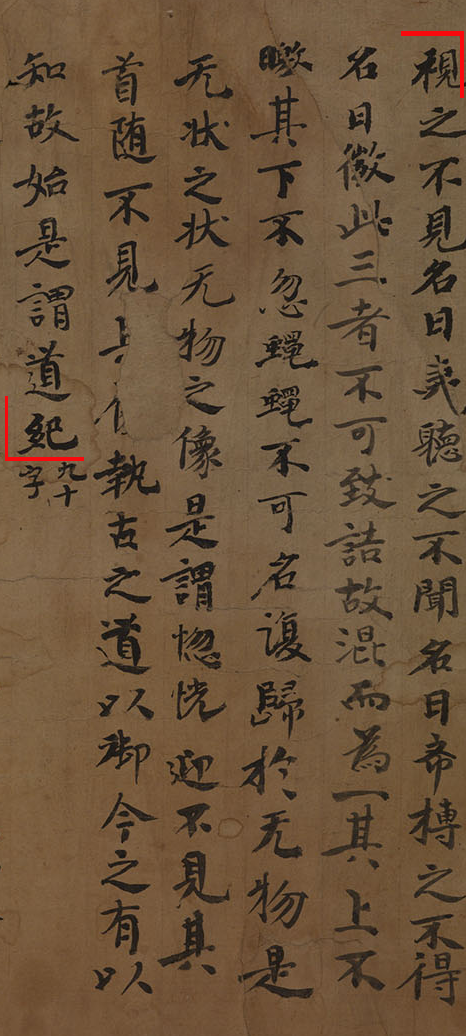 視之不見名曰夷聽之不聞名曰希搏之不得
名曰微此三者不可致詰故混而為一其上不
曒其下不忽蠅蠅不可名復歸於无物是
无状之状无物之像是謂惚恍迎不見其
首随不見執古之道以御今之有以
知故始是謂道紀九十字